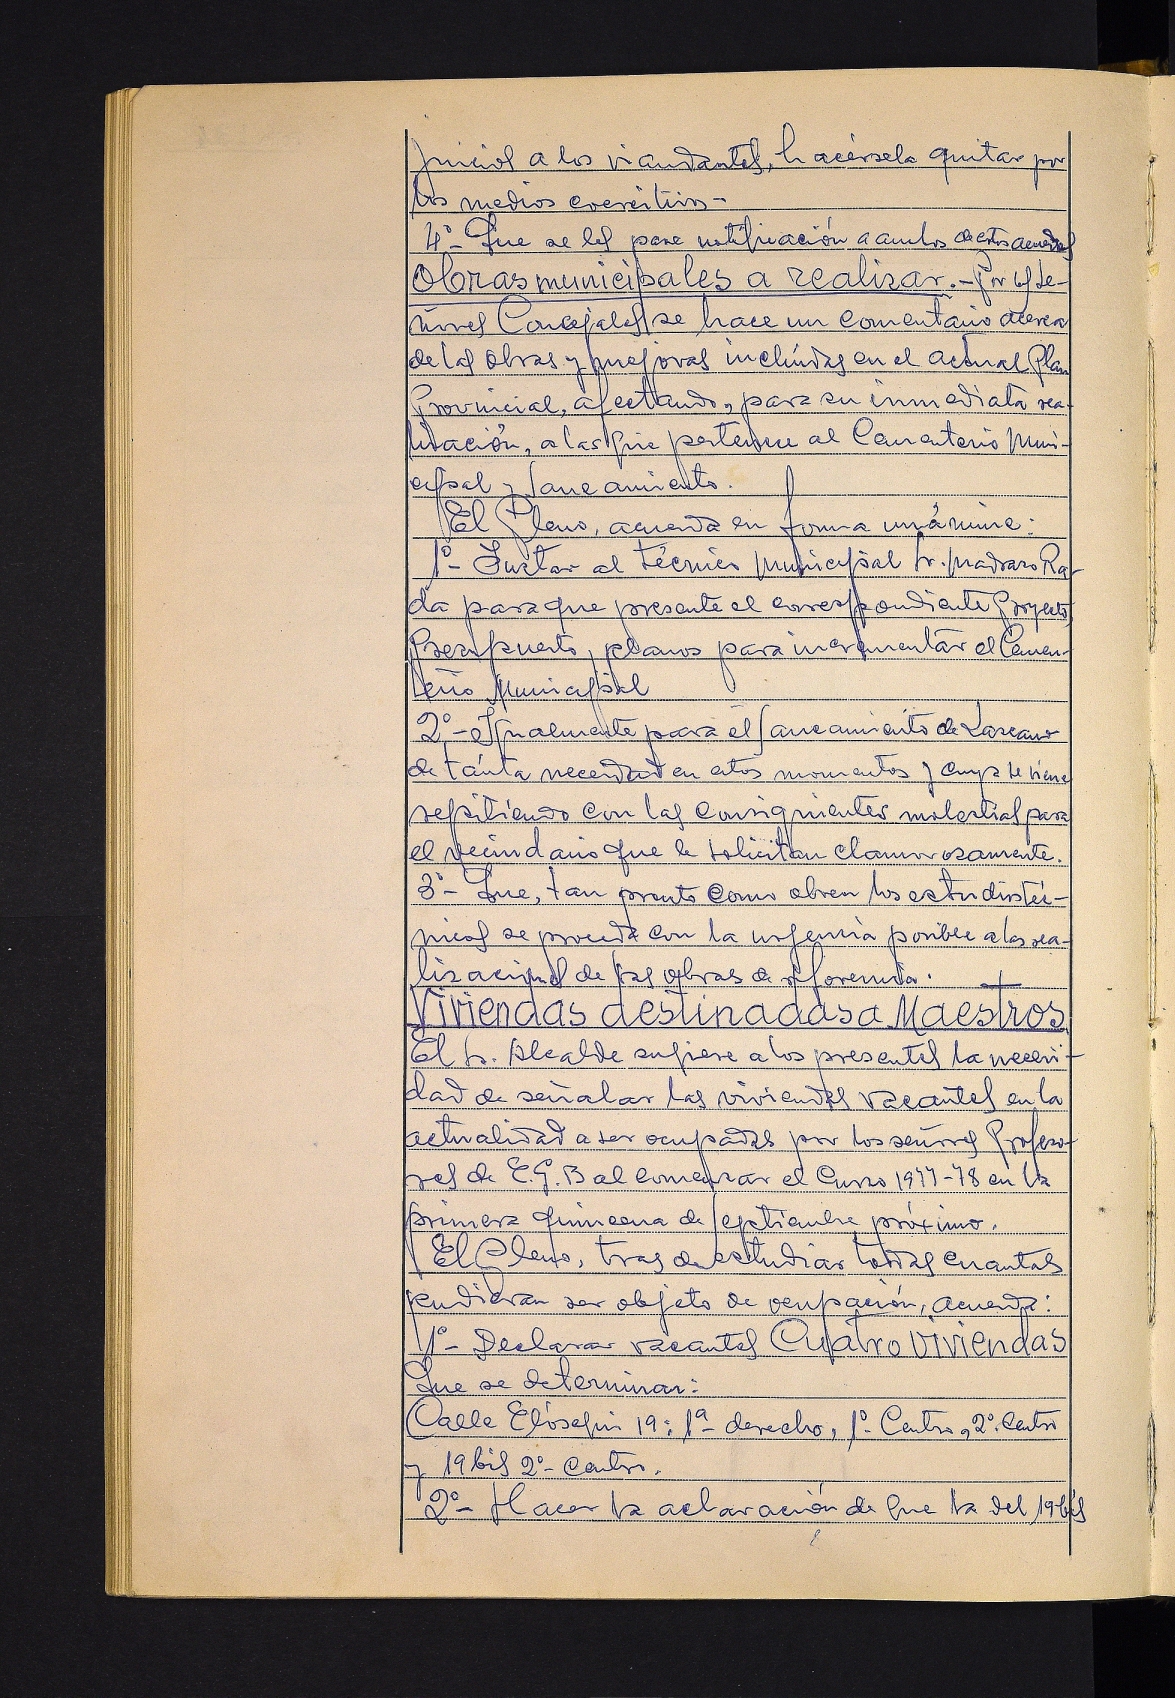 juicios a los viandantes, hacérsela quitar por
los medios coercitivos-
4º- Que se les pase notificación a ambos de estos acuerdos
Obras municipales a realizar.- Por los Se-
ñores Concejales se hace un comentario acerca
de las obras y mejoras incluídas en el actual Plan
Provincial, afectando, para su inmediata rea-
lización, a las que pertenece al Cementerio Muni-
cipal y Saneamiento.
El Pleno, acuerda en forma unánime:
1º- Instar al técnico Municipal Sr. Madrazo Ra-
da para que presente el correspondiente Proyecto,
Presupuesto, planos para incrementar el Cemen-
terio Municipal
2º- Igualmente para el Saneamiento de Lazcano
de tánta necesidad en estos momentos y se viene
repitiendo con las consiguientes molestias para
el vecindario que le solicitan clamorosamente.
3º- Que, tan pronto como obren los estudios téc-
nicos se proceda con la urgencia posible a las rea-
lizaciones de las obras de referencia.
Viviendas destinadas a Maestros
El Sr. Alcalde sugiere a los presentes la necesi-
dad de señalar las viviendas vacantes en la
actualidad a ser ocupadas por los señores Profeso-
res de E.G.B al comenzar el Curso 1977-78 en la
primera quincena de Septiembre próximo.
El Pleno, tras de estudiar todas cuantas
pudieran ser objeto de ocupación, acuerda:
1º- Declarar vacantes Cuatro viviendas
Que se determinan:
Calle Elósegui 19: 1º- derecho, 1º- Centro, 2º. Centro
y 19 bis 2º- Centro.
2º- Hacer la aclaración de que la del 19 bis